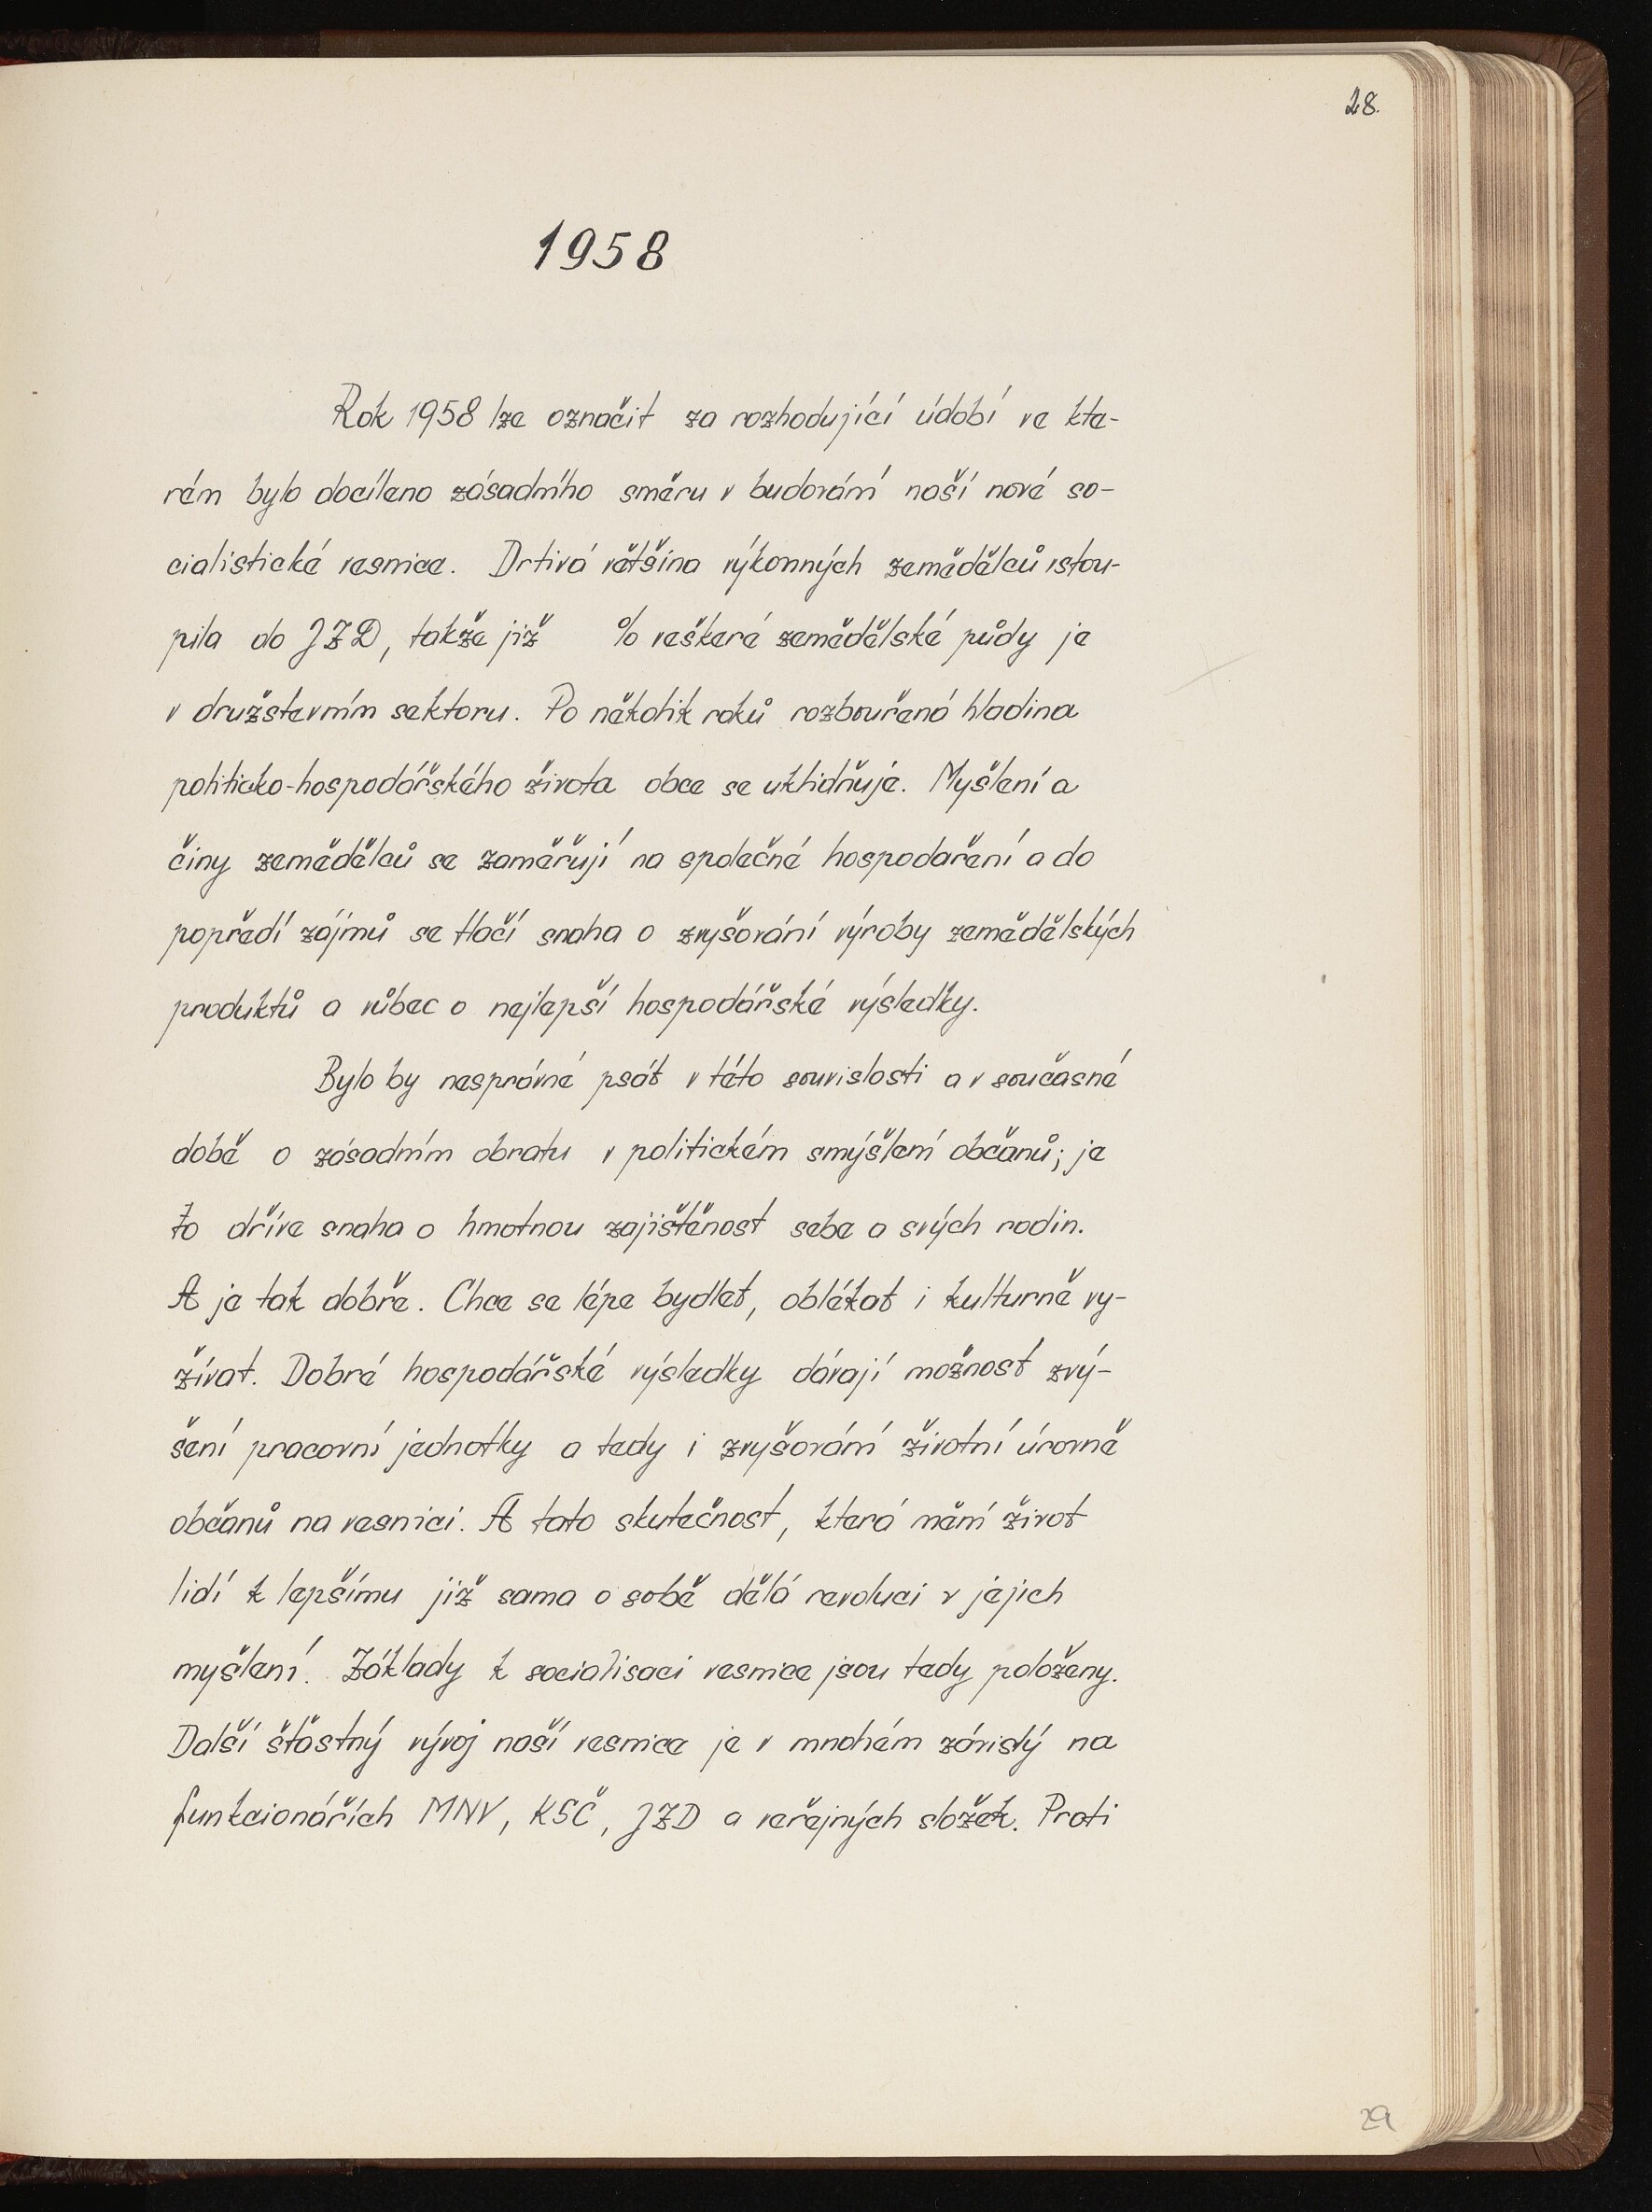 28.
1958
Rok 1958 lze označit za rozhodující údobí ve kte-
rém bylo docíleno zásadního směru v budování naší nové so-
cialistické vesnice. Drtivá většina výkonných zemědělců vstou-
pila do JZD, takže již % veškeré zemědělské půdy je
v družstevním sektoru. Po několik roků rozbouřená hladina
politicko-hospodářského života obce se uklidňuje. Myšlení a
činy zemědělců se zaměřují na společné hospodaření a do
popředí zájmů se tlačí snaha o zvyšování výroby zemědělských
produktů a vůbec o nejlepší hospodářské výsledky.
Bylo by nesprávné psát v této souvislosti a v současné
době o zásadním obratu v politickém smýšlení občanů; je
to dříve snaha o hmotnou zajištěnost sebe a svých rodin.
A je tak dobře. Chce se lépe bydlet, oblékat i kulturně vy-
žívat. Dobré hospodářské výsledky dávají možnost zvý-
šení pracovní jednotky a tedy i zvyšování životní úrovně
občanů na vesnici. A tato skutečnost, která mění život
lidí k lepšímu již sama o sobě dělá revoluci v jejich
myšlení. Základy k socialisaci vesnice jsou tedy položeny.
Další šťastný vývoj naší vesnice je v mnohém závislý na
funkcionářích MNV, KSČ, JZD a veřejných složek. Proti
29